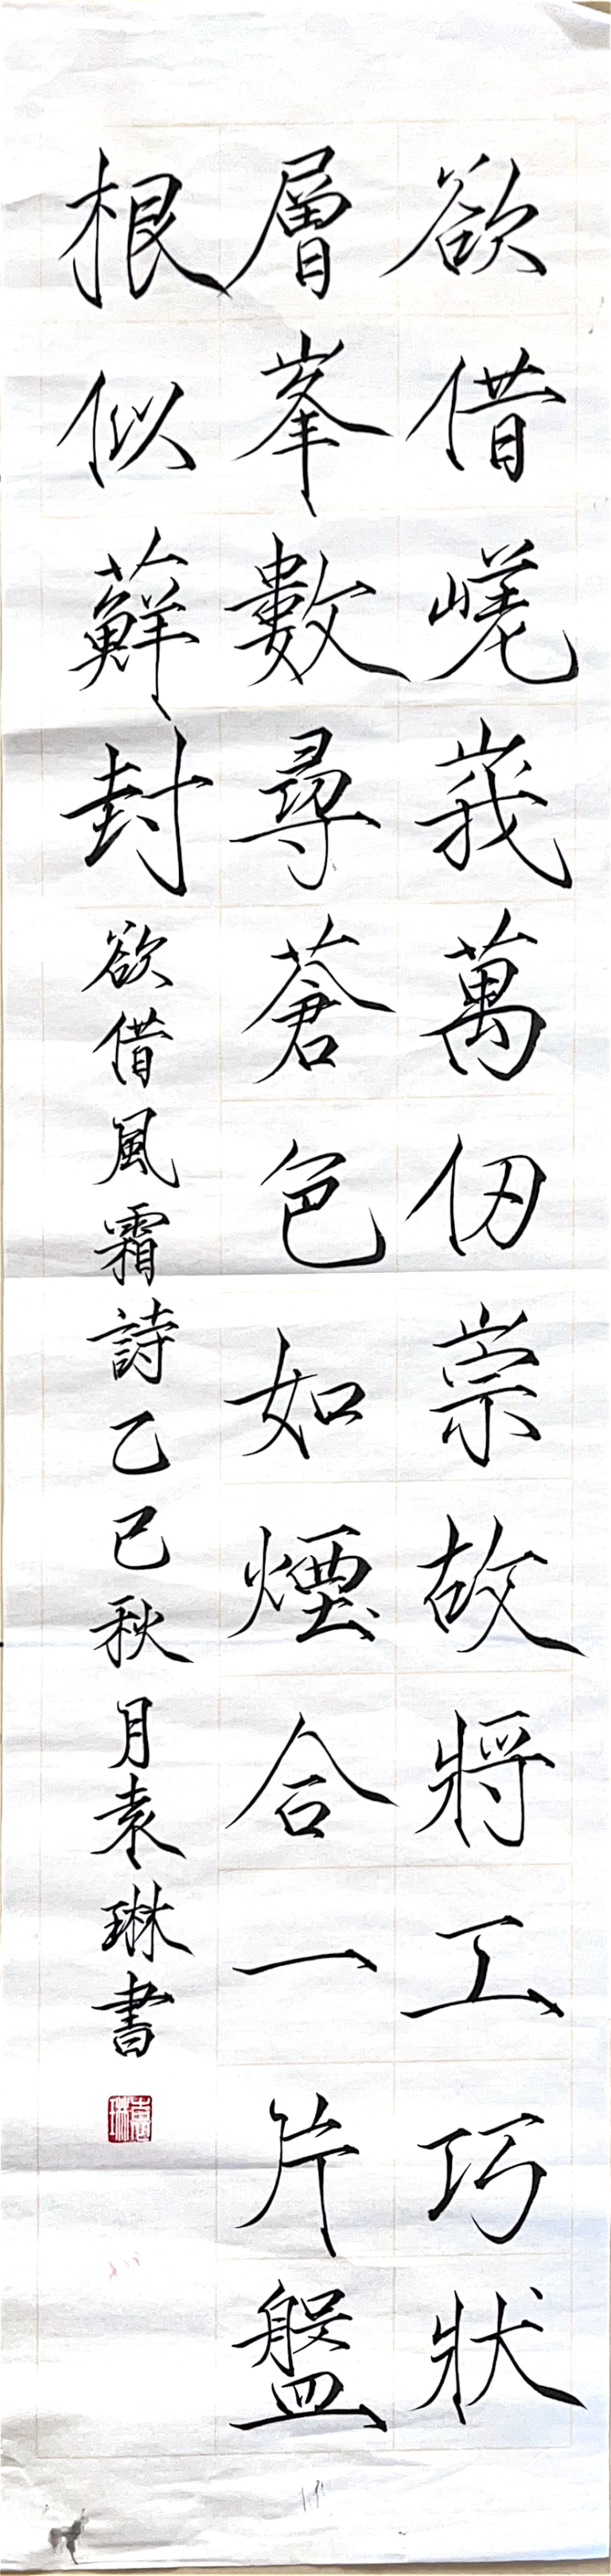 欲借嵯峩萬仞崇故將工巧狀
層峯數尋蒼色如煙合一片盤
根似蘚封欲借風霜詩乙巳秋月袁琳書
袁琳